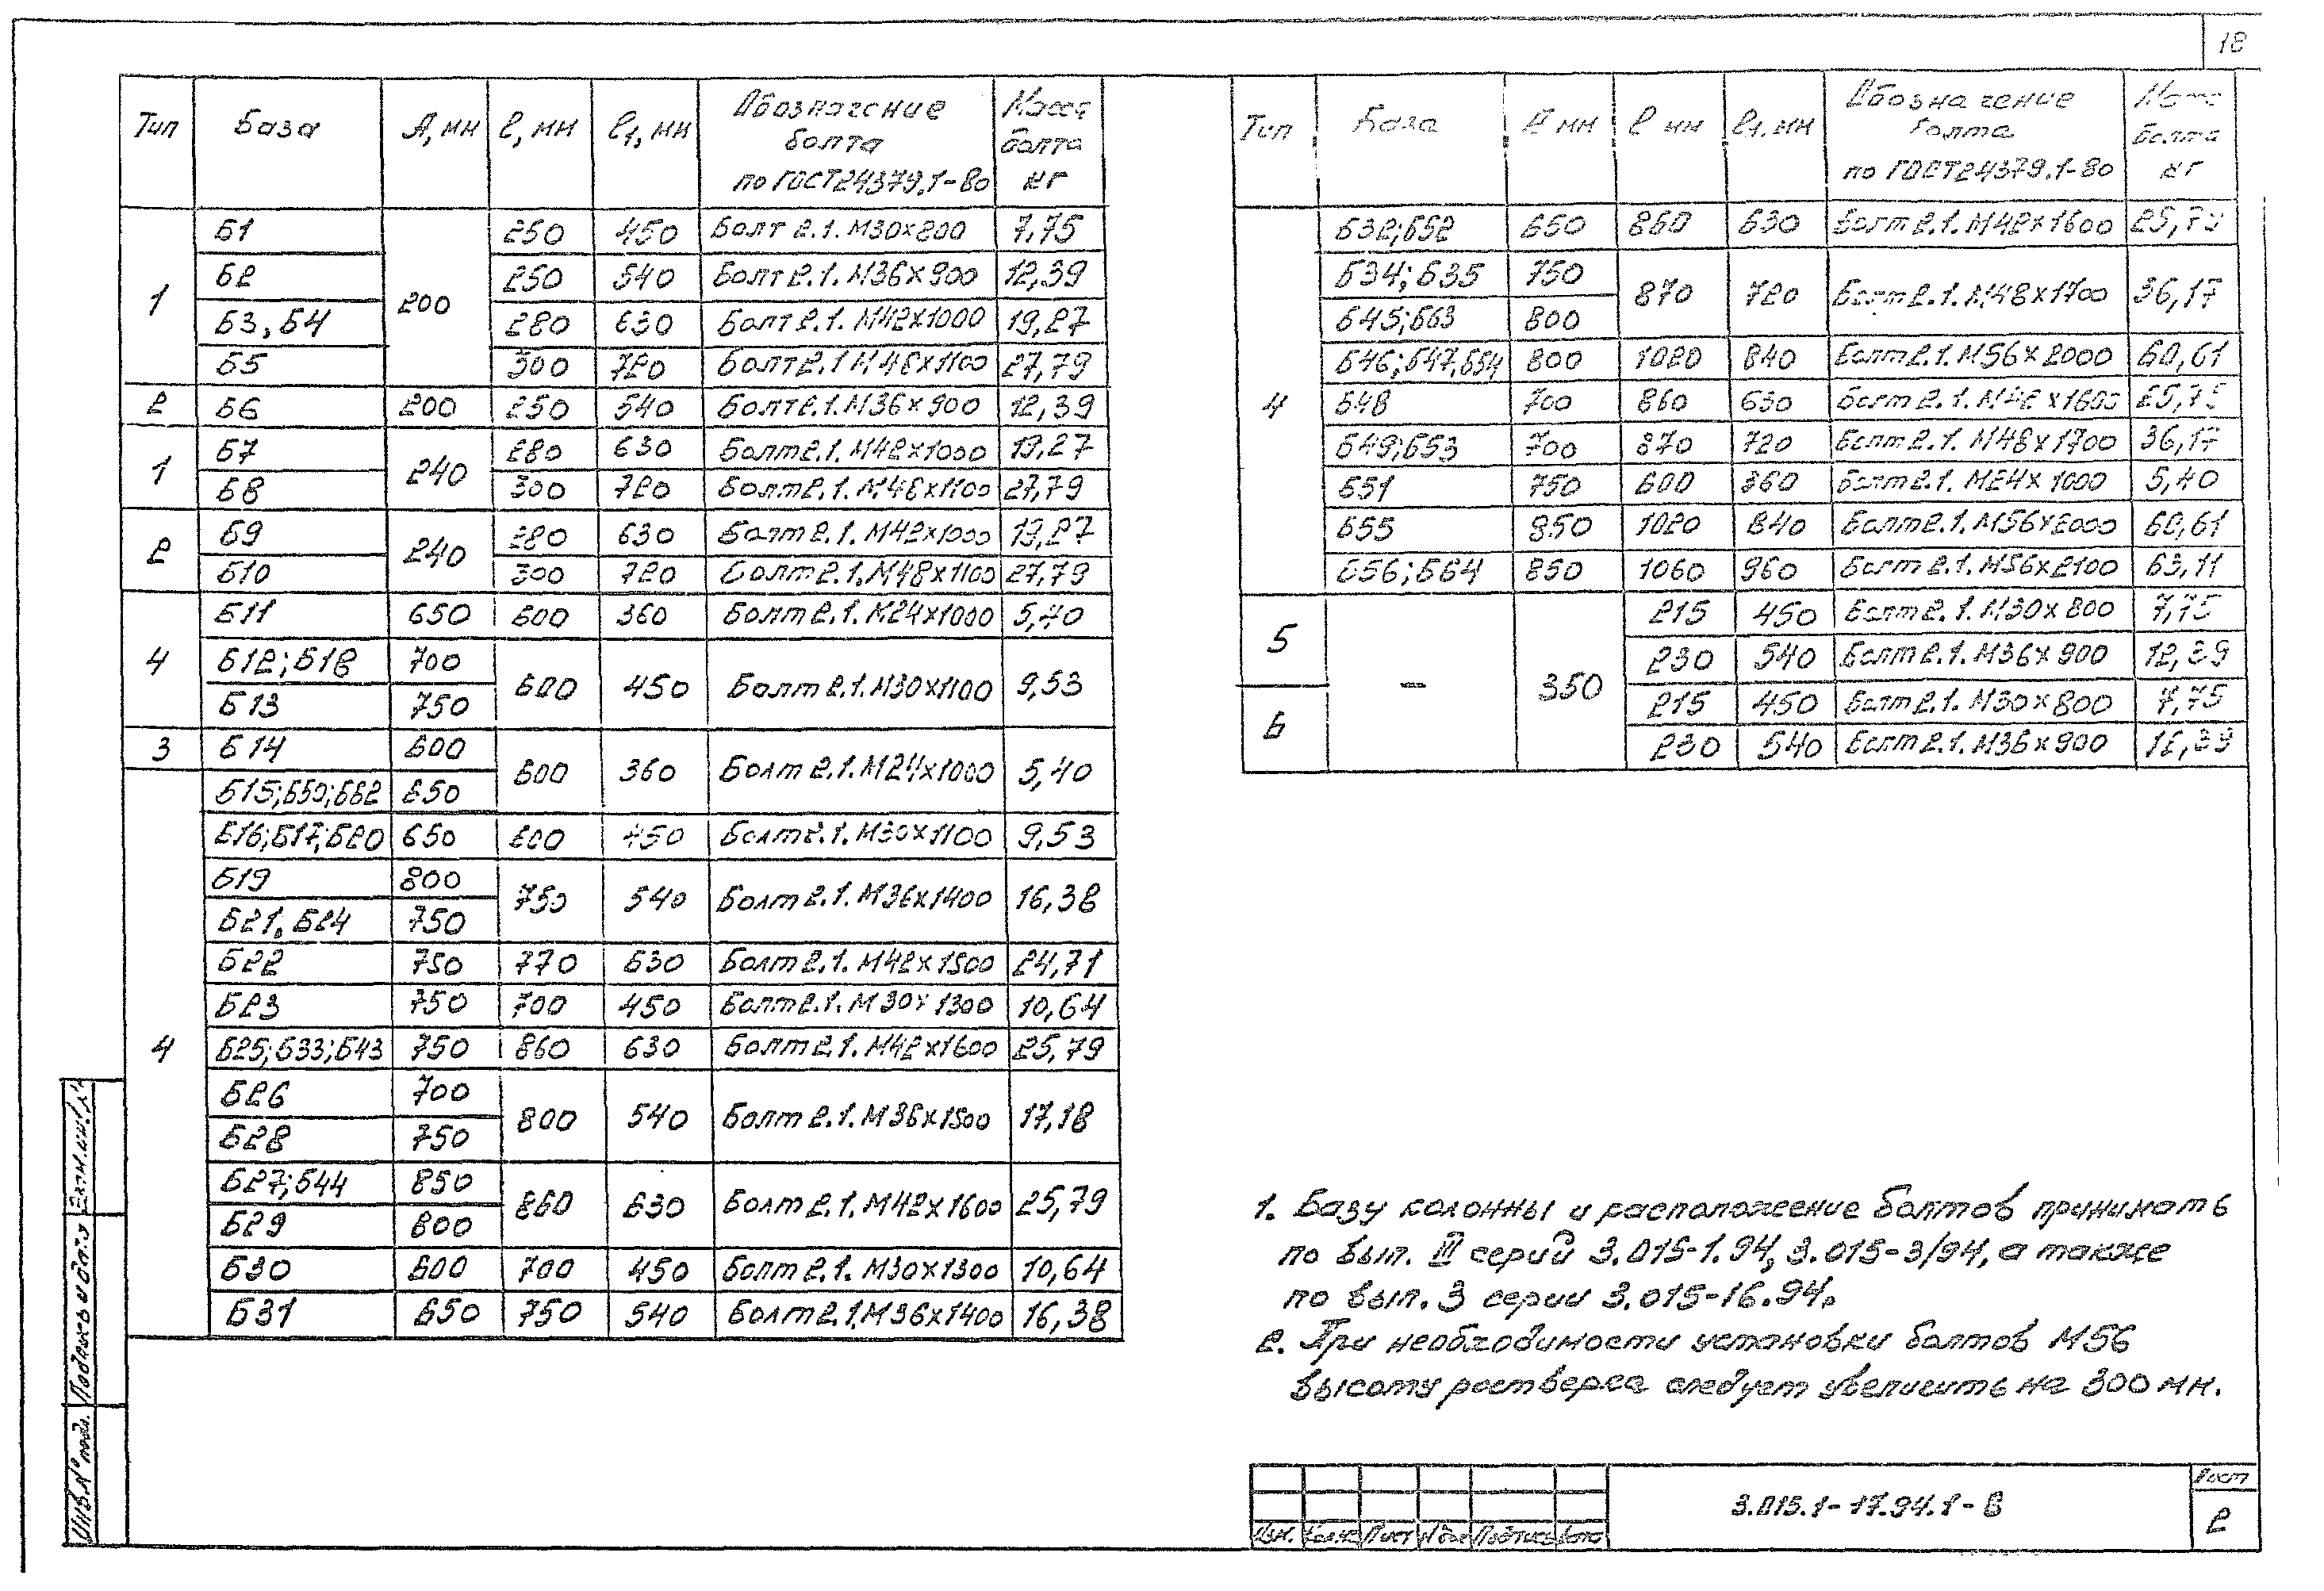 18
Тип База А, мм ℓ, мм ℓ1, мм Обозначение болта по ГОСТ 24379.1-80 Масса болта кг
1 Б1 200 250 450 Болт 2.1. М30×800 7,75
Б2 250 540 Болт 2.1. М36×900 12,39
Б3, Б4 280 630 Болт 2.1. М42×1000 19,27
Б5 300 720 Болт 2.1 М48×1100 27,79
2 Б6 200 250 540 Болт 2.1. М36×900 12,39
1 Б7 240 280 630 Болт 2.1. М42×1000 19,27
Б8 300 720 Болт 2.1. М48×1100 27,79
2 Б9 240 280 630 Болт 2.1. М42×1000 19,27
Б10 300 720 Болт 2.1. М48×1100 27,79
4 Б11 650 600 360 Болт 2.1. М24×1000 5,40
Б12; Б18 700 600 450 Болт 2.1. М30×1100 9,53
Б13 750
3 Б14 600 600 360 Болт 2.1. М24×1000 5,40
4 Б15; Б50; 650
Б16; Б17; Б20 650 600 450 Болт 2.1. М30×1100 9,53
Б19 800 750 540 Болт 2.1. М36×1400 16,38
Б21, Б24 750
Б22 750 770 630 Болт 2.1. М42×1500 24,71
Б23 750 700 450 Болт 2.1. М30×1300 10,64
Б25; Б33; Б43 750 860 630 Болт 2.1. М42×1600 25,79
Б26 700 800 540 Болт 2.1. М36×1500 17,18
Б28 750
Б27; Б44 850 860 630 Болт 2.1. М42×1600 25,79
Б29 800
Б30 600 700 450 Болт 2.1. М30×1300 10,64
Б31 650 750 540 Болт 2.1. М36×1400 16,38
Тип База А мм ℓ мм ℓ1, мм Обозначение болта по ГОСТ 24379.1-80 Масса болта кг
4 Б32; Б52 650 860 630 Болт 2.1. М42×1600 25,79
Б34; Б35 750 870 720 Болт 2.1. М48×1700 36,17
Б45; Б63 800
Б46; Б47, Б54 800 1020 840 Болт 2.1. М56×2000 60,61
Б48 700 860 630 Болт 2.1. М42×1600 25,79
Б49; Б53 700 870 720 Болт 2.1. М48×1700 36,17
Б51 750 600 360 Болт 2.1. М24×1000 5,40
Б55 850 1020 840 Болт 2.1. М56×2000 60,61
Б56; Б64 850 1060 960 Болт 2.1. М56×2100 63,11
5 — 350 215 450 Болт 2.1. М30×800 7,75
230 540 Болт 2.1. М36×900 12,39
6 215 450 Болт 2.1. М30×800 7,75
230 540 Болт 2.1. М36×900 12,39
1. Базу колонны и расположение болтов принимать
по вып. III серий 3.015-1.94, 3.015-3/94, а также
по вып. 3 серии 3.015-16.94.
2. При необходимости установки болтов М56
высоту ростверка следует увеличить на 300 мм.
Инв.№ подл. Подпись и дата Взам.инв.№
Изм. Кол.уч Лист №док Подпись Дата
3.015.1-17.94.1-8
Лист
2